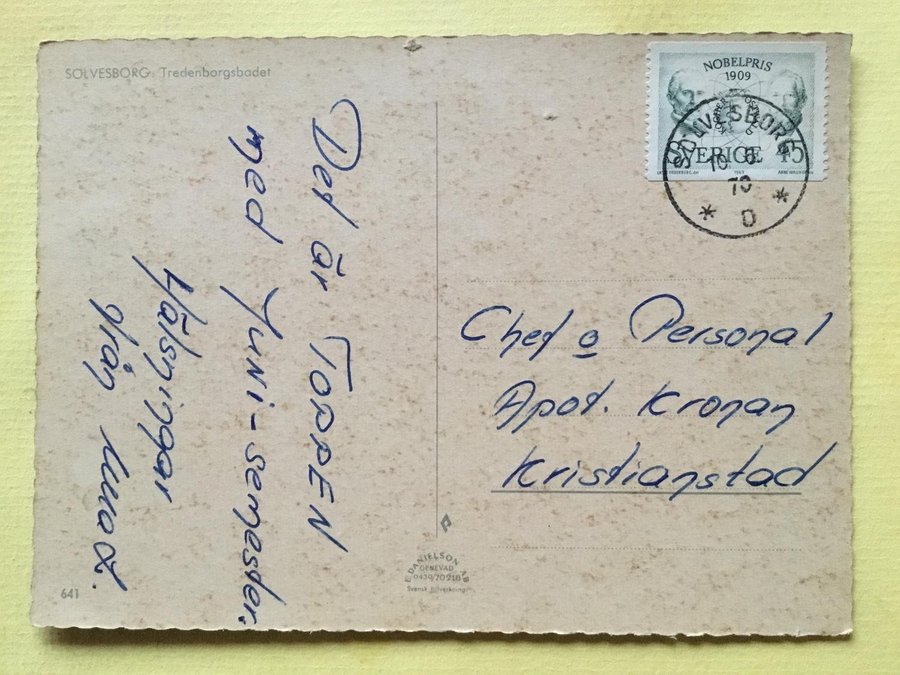 SÖLVESBORG. Tredenborgsbadet
Det är TOPPEN
med Juni-semester.
Hälsningar
från
NOBELPRIS
1909
SVERIGE 45
SÖLVESBORG
10 6
70
* D *
Chef o Personal
Apot. Kronan
Kristianstad
E. DANIELSON AB
GENEVAD
0430/70218
Svensk tillverkning
641